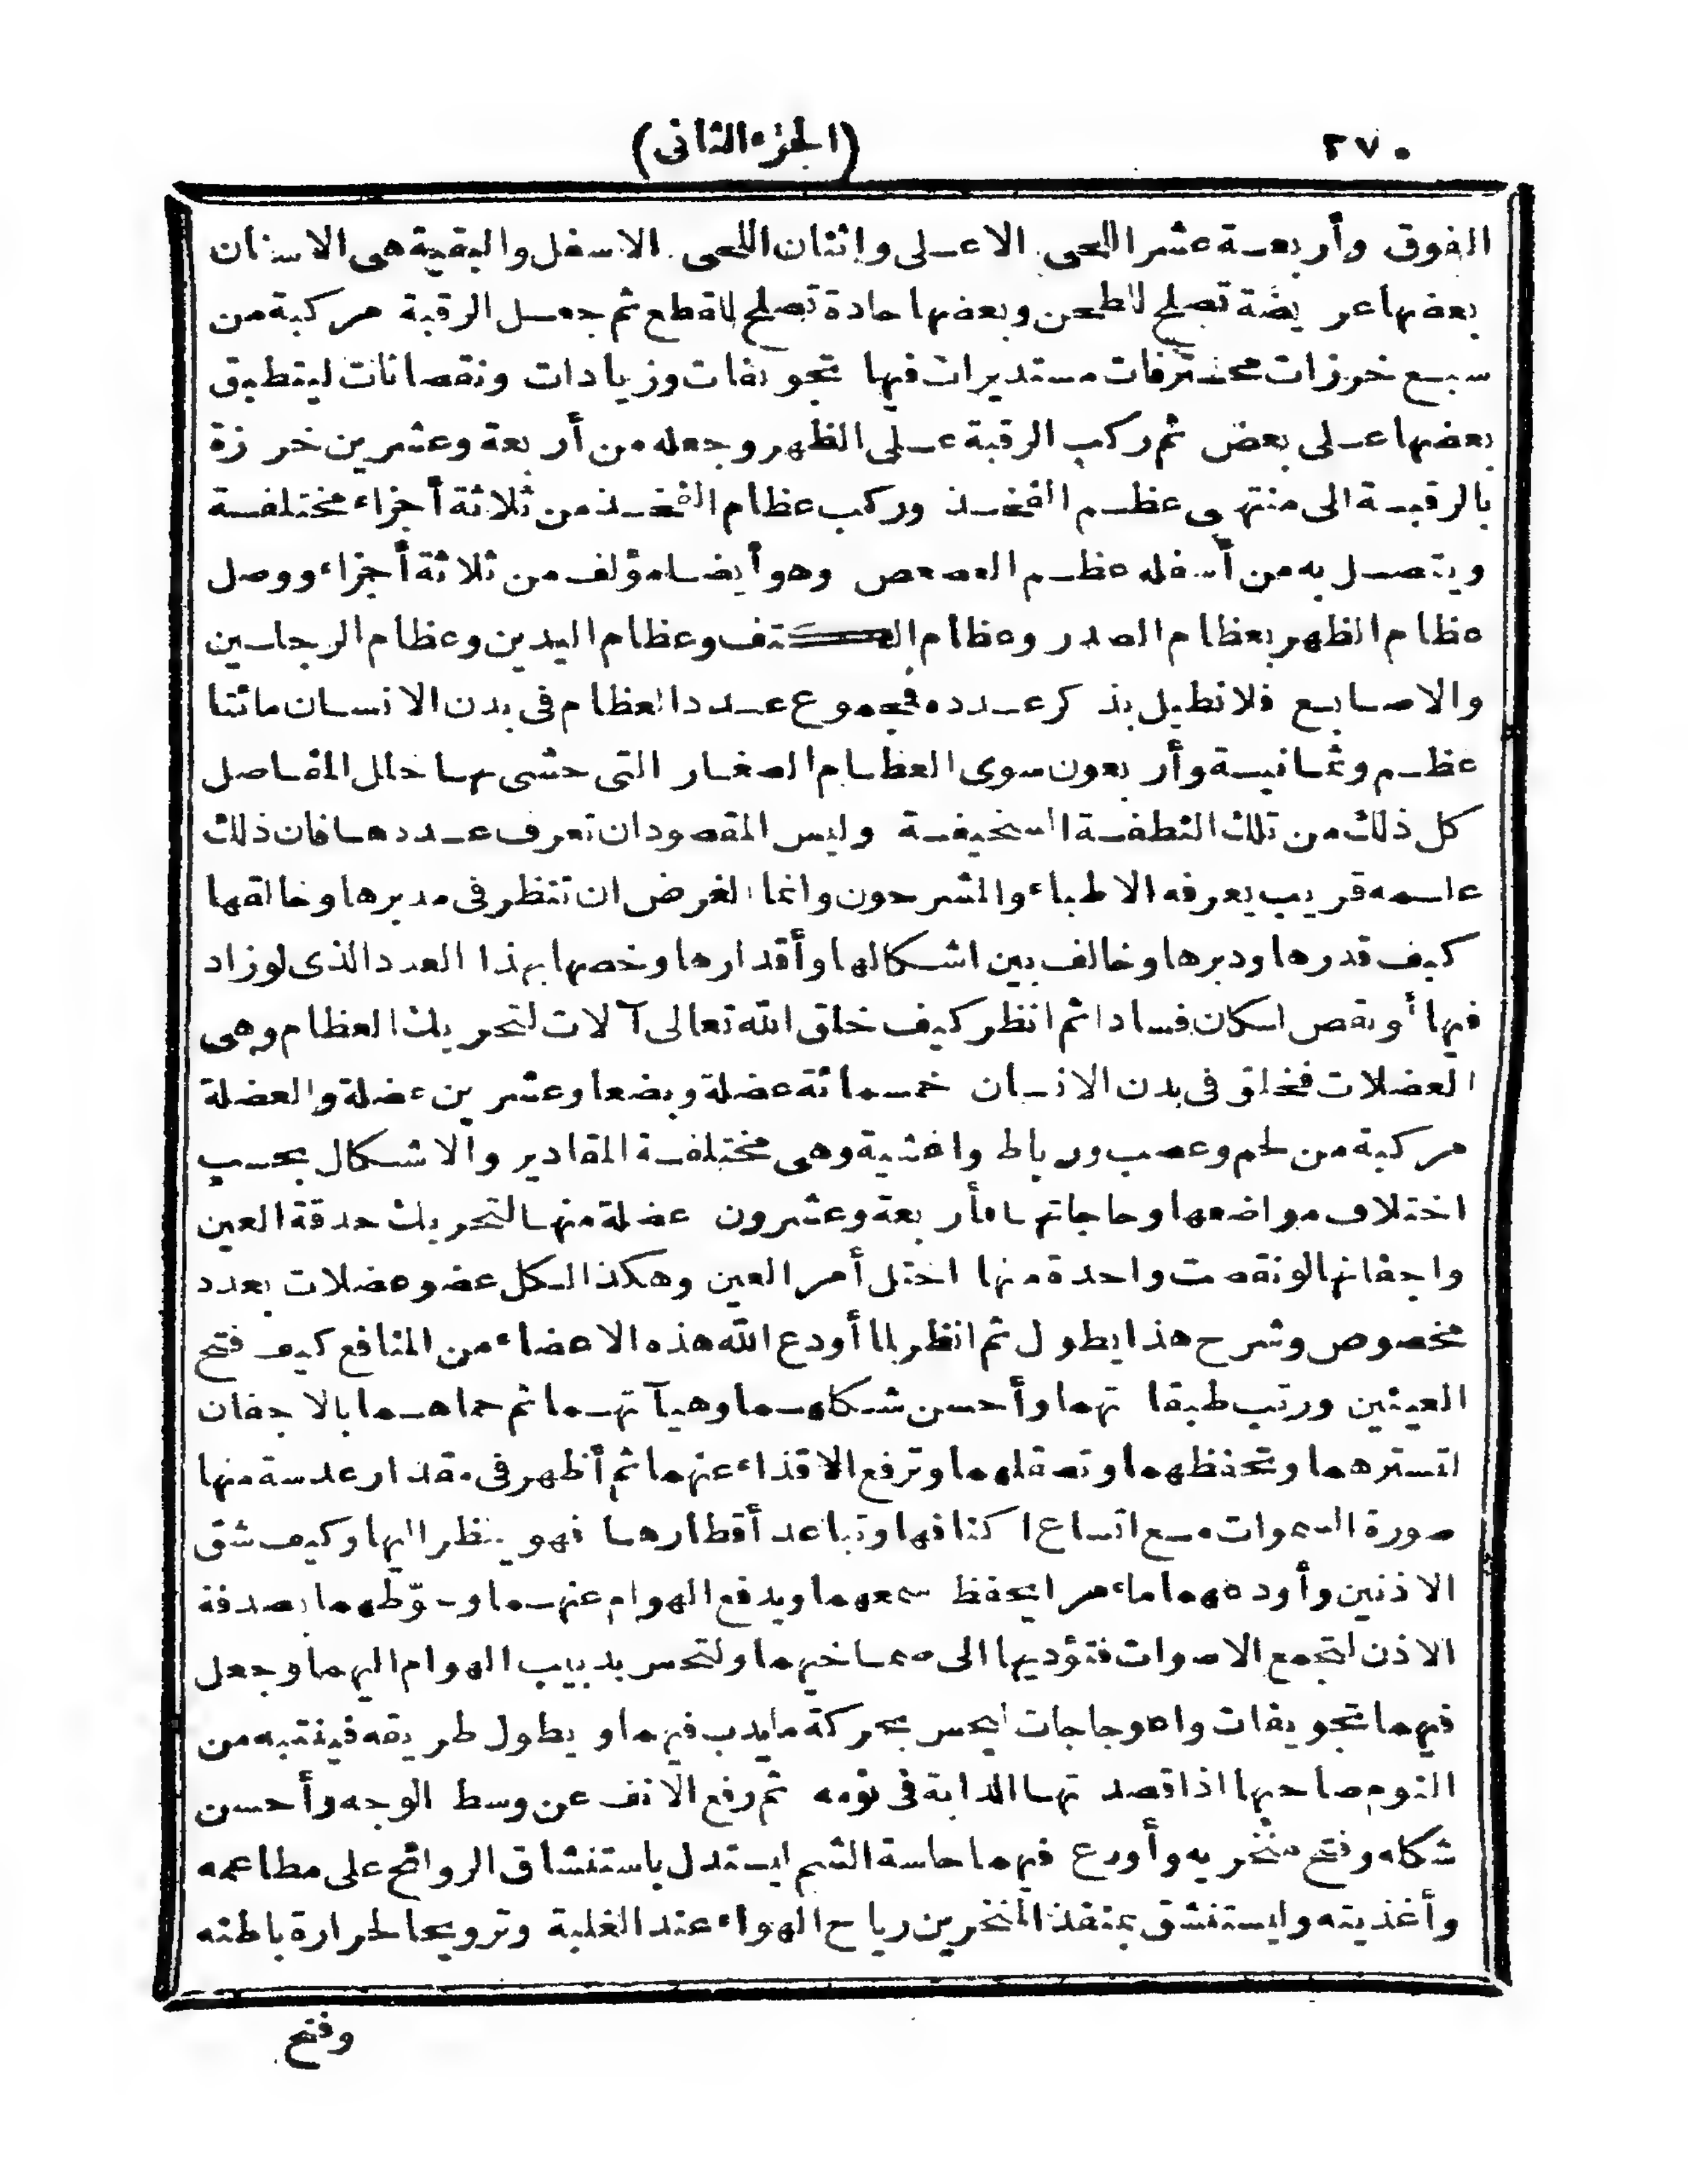 ٢٧٠
(الجزء الثاني)
الفوق وأربعة عشر اللحى الاعلى واثنان اللحى الاسفل والبقية هى الاسنان
بعضها عريضة تصلح للطحن وبعضها حادة تصلح للقطع ثم جعل الرقبة مركبة من
سبع خرزات مخترقات مستديرات فيها تجويفات وزيادات ونقصانات لينطبق
بعضها على بعض ثم ركب الرقبة على الظهر وجعله من أربعة وعشرين خرزة
بالرقبة الى منتهى عظم الفخذ وركب عظام الفخذ من ثلاثة أجزاء مختلفة
ويتصل به من أسفله عظم العصعص وهو أيضا مؤلف من ثلاثة أجزاء ووصل
عظام الظهر بعظام الصدر وعظام الكتف وعظام اليدين وعظام الرجلين
والاصابع فلا نطيل بذكر عدده فمجموع عدد العظام فى بدن الانسان مائتا
عظم وثمانية وأربعون سوى العظام الصغار التى حشى بها خلل المفاصل
كل ذلك من تلك النطفة السخيفة وليس المقصود ان تعرف عددها فان ذلك
علمه قريب يعرفه الاطباء والمشرحون وانما الغرض ان تنظر فى مدبرها وخالقها
كيف قدرها ودبرها وخالف بين اشكالها وأقدارها وخصها بهذا العدد الذى لو زاد
فيها أو نقص لكان فسادا ثم انظر كيف خلق الله تعالى آلات لتحريك العظام وهى
العضلات فخلق فى بدن الانسان خمسمائة عضلة وبضعا وعشرين عضلة والعضلة
مركبة من لحم وعصب ورباط واغشية وهى مختلفة المقادير والاشكال بحسب
اختلاف مواضعها وحاجاتها فأربعة وعشرون عضلة منها لتحريك حدقة العين
واجفانها لو نقصت واحدة منها اختل أمر العين وهكذا لكل عضو عضلات بعدد
مخصوص وشرح هذا يطول ثم انظر لما أودع الله هذه الاعضاء من المنافع كيف فتح
العينين ورتب طبقاتهما وأحسن شكلهما وهيآتهما ثم حماهما بالاجفان
لتسترهما وتحفظهما وتصقلهما وترفع الاقذاء عنهما ثم أظهر فى مقدار عدسة منها
صورة السموات مع اتساع اكنافها وتباعد أقطارها فهو ينظر اليها وكيف شق
الاذنين وأودعهما ماء مرا يحفظ سمعهما ويدفع الهوام عنهما وحوّطهما بصدفة
الاذن لتجمع الاصوات فتؤديها الى صماخيهما ولتحس بدبيب الهوام اليهما وجعل
فيهما تجويفات واعوجاجات ليحس بحركة ما يدب فيهما ويطول طريقه فينتبه من
النوم صاحبها اذا قصدتها الدابة فى نومه ثم رفع الانف عن وسط الوجه وأحسن
شكله وفتح منخريه وأودع فيهما حاسة الشم ليستدل باستنشاق الروائح على مطاعمه
وأغذيته وليستنشق بمنفذ المنخرين رياح الهواء عند الغلبة وترويحا لحرارة باطنه
وفتح